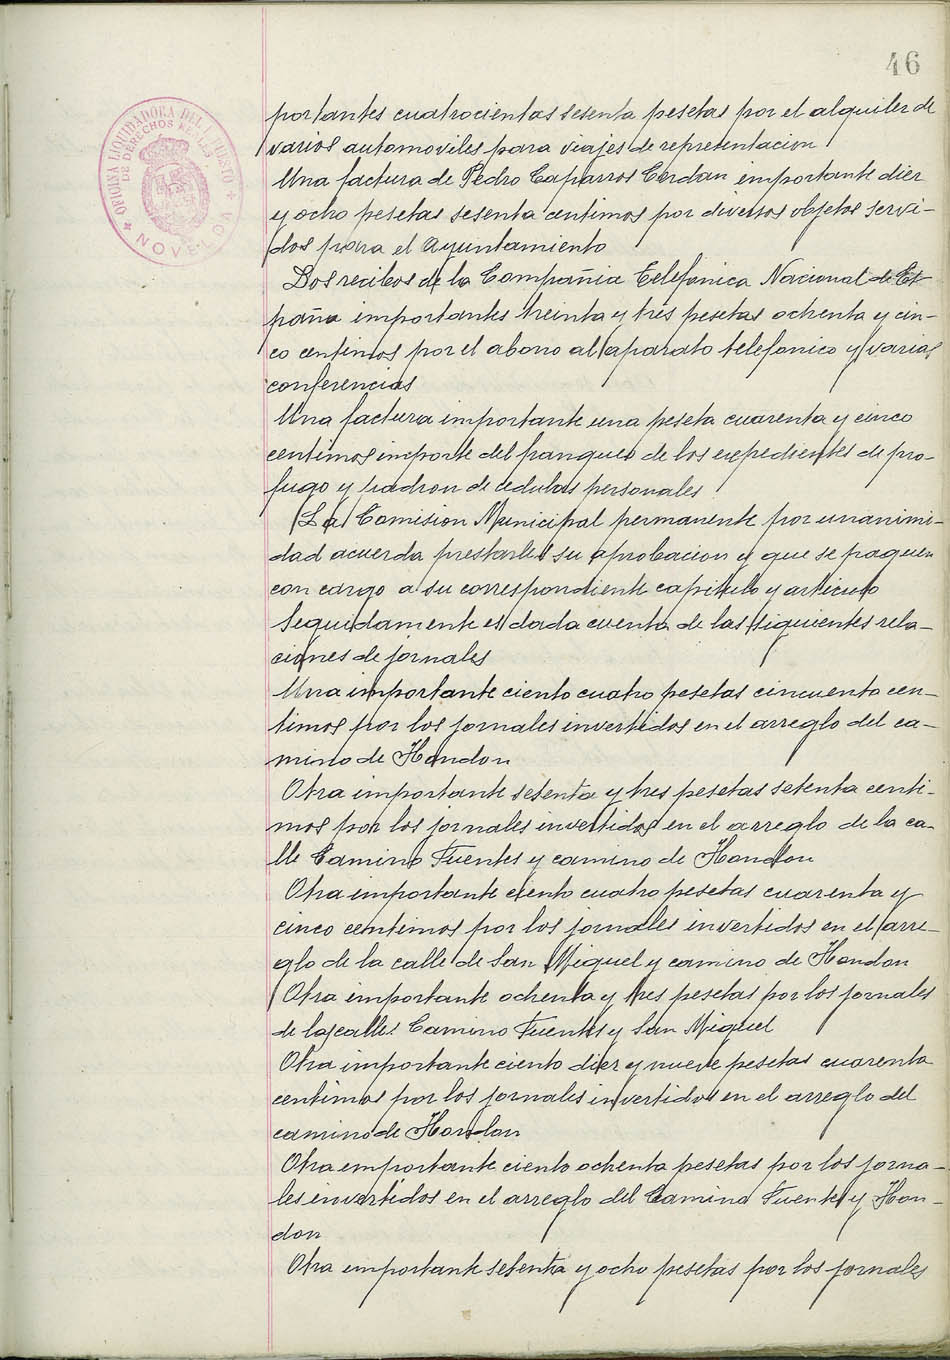 46
OFICINA LIQUIDADORA DEL IMPUESTO
DE DERECHOS REALES
NOVELDA
portantes cuatrocientas sesenta pesetas por el alquiler de
varios automoviles para viajes de representacion
Una factura de Pedro Caparros Cerdan importante diez
y ocho pesetas sesenta centimos por diversos objetos servi-
dos para el Ayuntamiento
Dos recibos de la Compañia Telefonica Nacional de Es-
paña importantes treinta y tres pesetas ochenta y cin-
co centimos por el abono al aparato telefonico y varias
conferencias
Una factura importante una peseta cuarenta y cinco
centimos importe del franqueo de los expedientes de pro-
fugo y padron de cedulas personales
La Comision Municipal permanente por unanimi-
dad acuerda prestarles su aprobacion y que se paguen
con cargo a su correspondiente capitulo y articulo
Seguidamente es dada cuenta de las siguientes rela-
ciones de jornales
Una importante ciento cuatro pesetas cincuenta cen-
timos por los jornales invertidos en el arreglo del ca-
mino de Hondon
Otra importante setenta y tres pesetas setenta centi-
mos por los jornales invertidos en el arreglo de la ca-
lle Camino Fuentes y camino de Hondon
Otra importante ciento cuatro pesetas cuarenta y
cinco centimos por los jornales invertidos en el arre-
glo de la calle de San Miguel y camino de Hondon
Otra importante ochenta y tres pesetas por los jornales
de las calles Camino Fuentes y San Miguel
Otra importante ciento diez y nueve pesetas cuarenta
centimos por los jornales invertidos en el arreglo del
camino de Hondon
Otra importante ciento ochenta pesetas por los jorna-
les invertidos en el arreglo del Camino Fuentes y Hon-
don
Otra importante setenta y ocho pesetas por los jornales